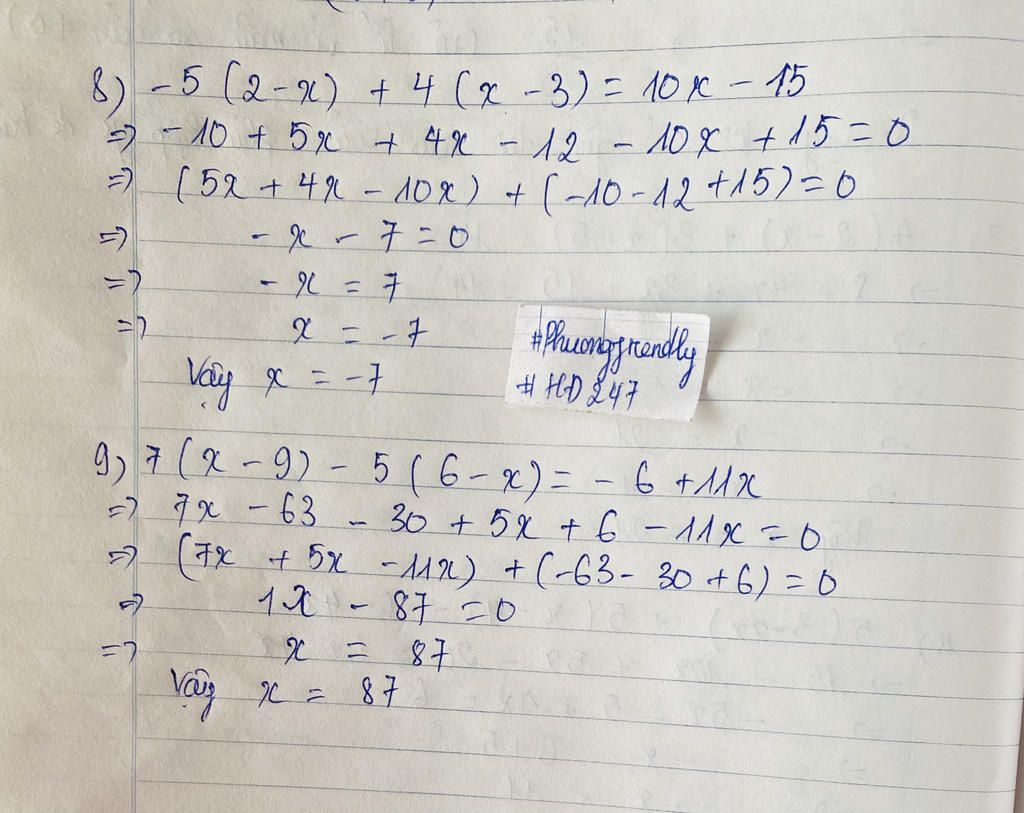 8) -5 (2-x) + 4 (x - 3) = 10x - 15
=> -10 + 5x + 4x - 12 - 10x + 15 = 0
=> (5x + 4x - 10x) + (-10 - 12 + 15) = 0
=> - x - 7 = 0
=> - x = 7
=> x = -7
Vậy x = -7
#Phuongfrendly
#HD247
9) 7 (x - 9) - 5 (6 - x) = - 6 + 11x
=> 7x - 63 - 30 + 5x + 6 - 11x = 0
=> (7x + 5x - 11x) + (-63 - 30 + 6) = 0
=> 1x - 87 = 0
=> x = 87
Vậy x = 87